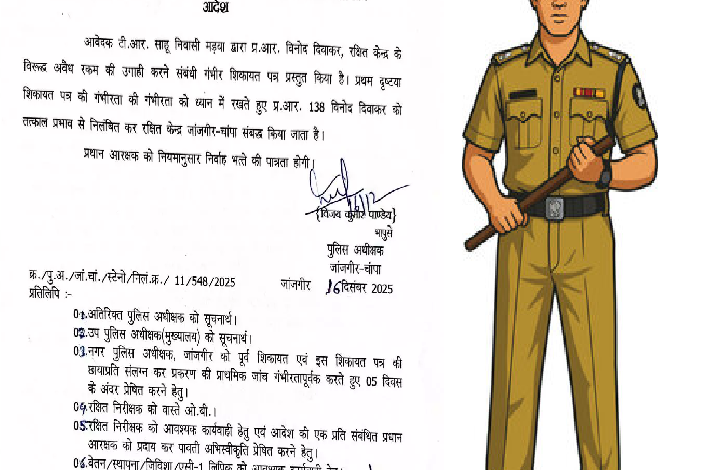 आदेश
आवेदक टी.आर. साहू निवासी मड़या द्वारा प्र.आर. विनोद दिवाकर, रक्षित केन्द्र के
विरूद्ध अवैध रकम की उगाही करने संबंधी गंभीर शिकायत पत्र प्रस्तुत किया है। प्रथम दृष्टया
शिकायत पत्र की गंभीरता की गंभीरता को ध्यान में रखते हुए प्र.आर. 138 विनोद दिवाकर को
तत्काल प्रभाव से निलंबित कर रक्षित केन्द्र जांजगीर-चांपा संबद्ध किया जाता है।
प्रधान आरक्षक को नियमानुसार निर्वाह भत्ते की पात्रता होगी।
(विजय कुमार पाण्डेय)
भापुसे
पुलिस अधीक्षक
जांजगीर-चांपा
क्र./पु.अ./जां.चां./स्टेनो/निलं.क्र./ 11/548/2025 जांजगीर 16 दिसंबर 2025
प्रतिलिपि :-
01.अतिरिक्त पुलिस अधीक्षक को सूचनार्थ।
02.उप पुलिस अधीक्षक(मुख्यालय) को सूचनार्थ।
03.नगर पुलिस अधीक्षक, जांजगीर को पूर्व शिकायत एवं इस शिकायत पत्र की
छायाप्रति संलग्न कर प्रकरण की प्राथमिक जांच गंभीरतापूर्वक करते हुए 05 दिवस
के अंदर प्रेषित करने हेतु।
04.रक्षित निरीक्षक को वास्ते ओ.बी.।
05.रक्षित निरीक्षक को आवश्यक कार्यवाही हेतु एवं आदेश की एक प्रति संबंधित प्रधान
आरक्षक को प्रदाय कर पावती अभिस्वीकृति प्रेषित करने हेतु।
06.वेतन/स्थापना/